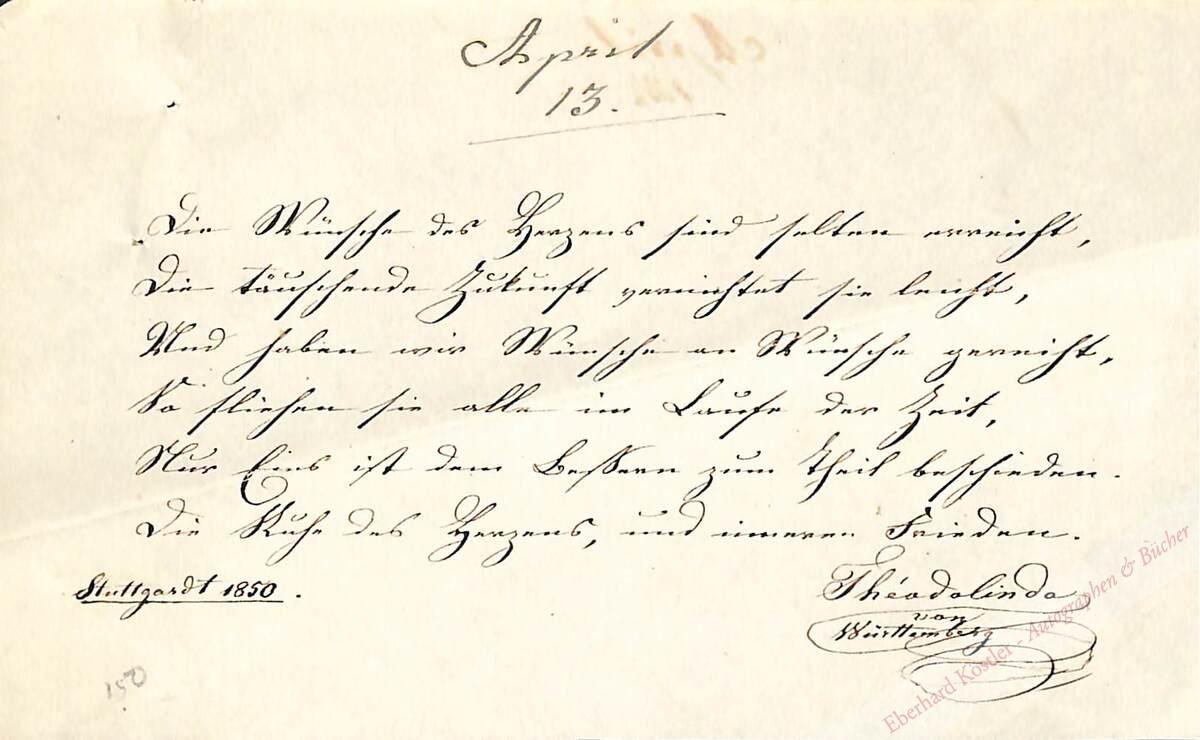 April
13.
Die Wünsche des Herzens sind selten erreicht,
Die täuschende Zukunft vernichtet sie leicht,
Und haben wir Wünsche an Wünsche gereiht,
So fliehen sie alle im Laufe der Zeit,
Nur Eins ist dem Bessern zum Theil beschieden.
Die Ruhe des Herzens, und inneren Frieden.
Stuttgardt 1850.
Théodolinda
von
Württemberg
150
Eberhard Köstler - Autographen & Bücher